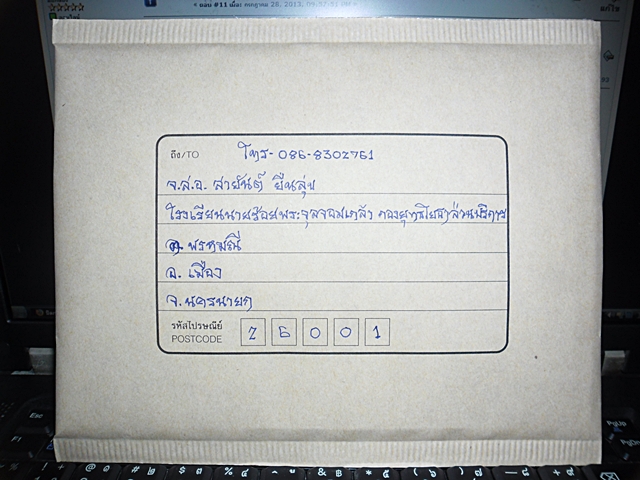 < ตอบ #11 เมื่อ: กรกฎาคม 26, 2013,
ถึง/TO โทร- 086-8302761
จ.ส.อ. สายันต์ ยืนสุข
โรงเรียนนายร้อยพระจุลจอมเกล้า กองยุทธโยธา ส่วนบริการ
ต. พรหมณี
อ. เมือง
จ. นครนายก
รหัสไปรษณีย์
POSTCODE 26001
Esc
F1
PgUp
PgDn